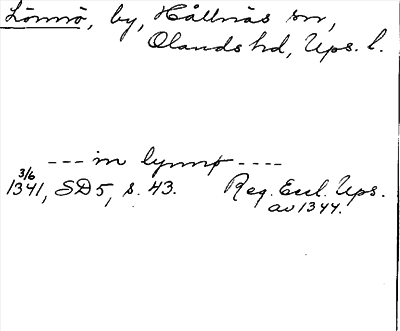 Lönnö, by, Hållnäs sn,
Olands hd, Ups. l.
--- in lynnø ----
3/6
1341, SD5, s. 43. Reg. Eccl. Ups.
av 1344.